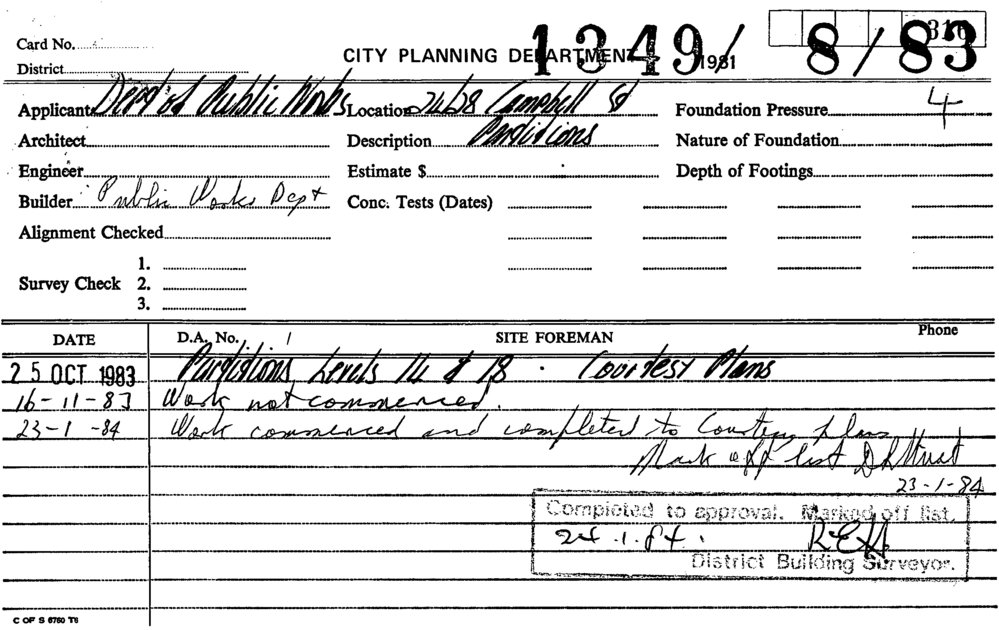 Card No.
316
CITY PLANNING DEPARTMENT 1981
1349/ 8/83
District
Applicant Dept of Public Works Location 24/28 Campbell St Foundation Pressure 4
Architect Description Partitions Nature of Foundation
Engineer Estimate $ Depth of Footings
Builder Public Works Dept Conc. Tests (Dates)
Alignment Checked
1.
Survey Check 2.
3.
DATE D.A. No. SITE FOREMAN Phone
25 OCT 1983 Partitions Levels 14 & 18 . Courtesy Plans
16-11-83 Work not commenced.
23-1-84 Work commenced and completed to Courtesy plans
Mark off list
23-1-84
Completed to approval. Marked off list.
24.1.84.
District Building Surveyor.
C OF S 6760 T6